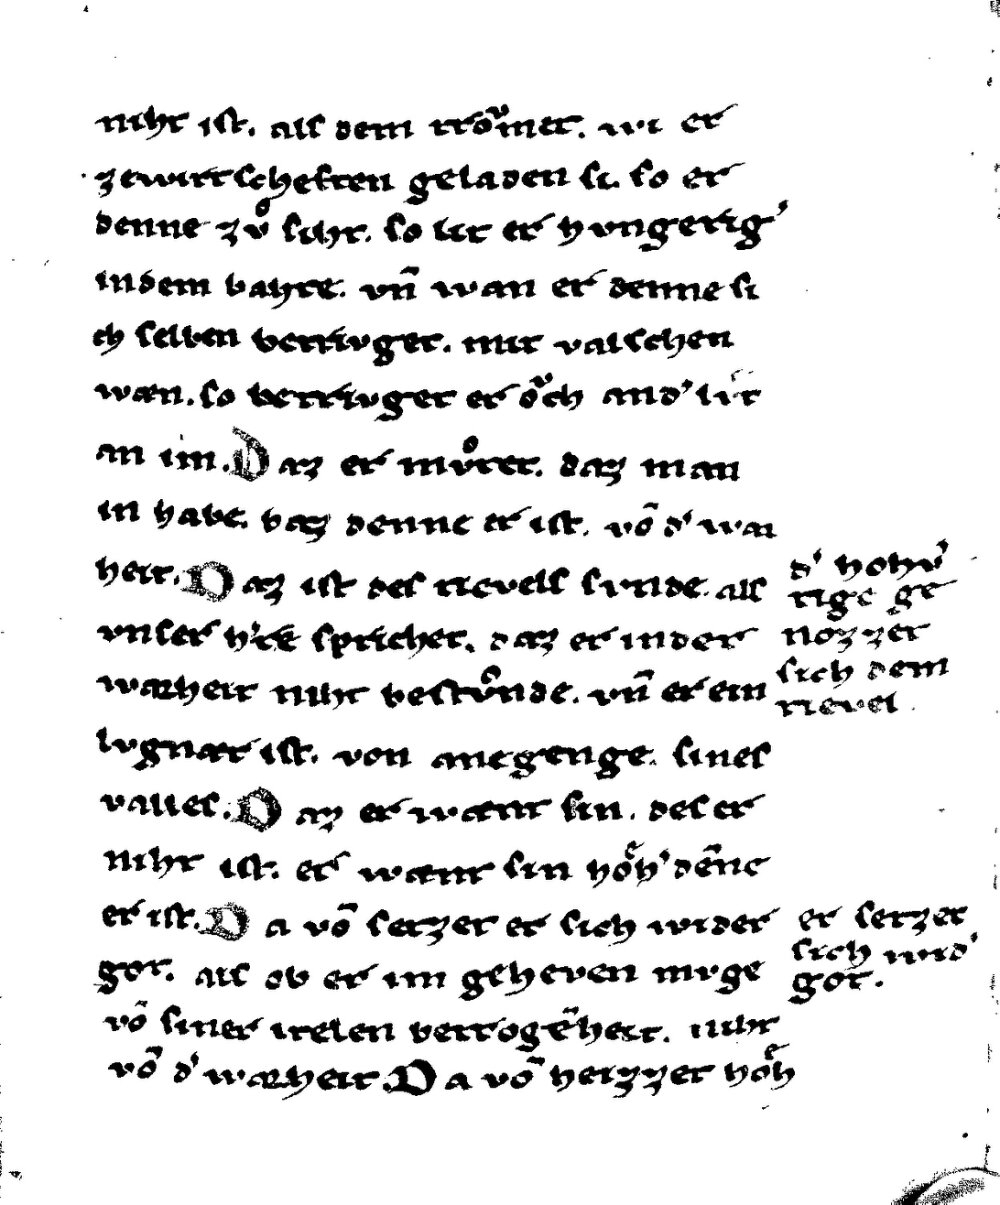 niht ist. als dem troͮmet. wi er
zewirtscheften geladen si. so er
denne zuͦ siht. so lit er hungerig̓
indem bahte. vn̄ wan er denne si
ch selben betrivget. mit valschen
wæn. so betrivget er oͮch and̓ livt
an im. Daz er muͦtet. daz man
in habe. baz denne er ist. vō d̓ war
heit. Daz ist des tievels sunde. als
unser h̓re sprichet. daz er inder
warheit niht bestuͦnde. vn̄ er ein
lugnær ist. von anegenge. sines
valles. Daz er wænt sin. des er
niht ist. er wænt sin hoͤh̓ dēne
er ist. Da vō setzet er sich wider
got. als ob er im geheven muge
vō siner itelen betrogēheit. niht
vō d̓ warheit. Da vō heizzet hoͤh
d̓ hohv̓
tige ge
nozzet
sich dem
tievel.
er setzet
sich wid̓
got.